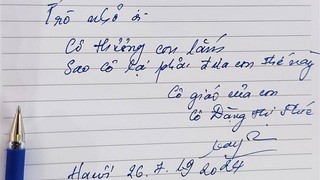 Trò nhỏ ơi
Cô thương con lắm
Sao cô lại phải đưa con thế này
Cô giáo của con
Cô Đặng Thị Phúc
Hà Nội 26.7.2024